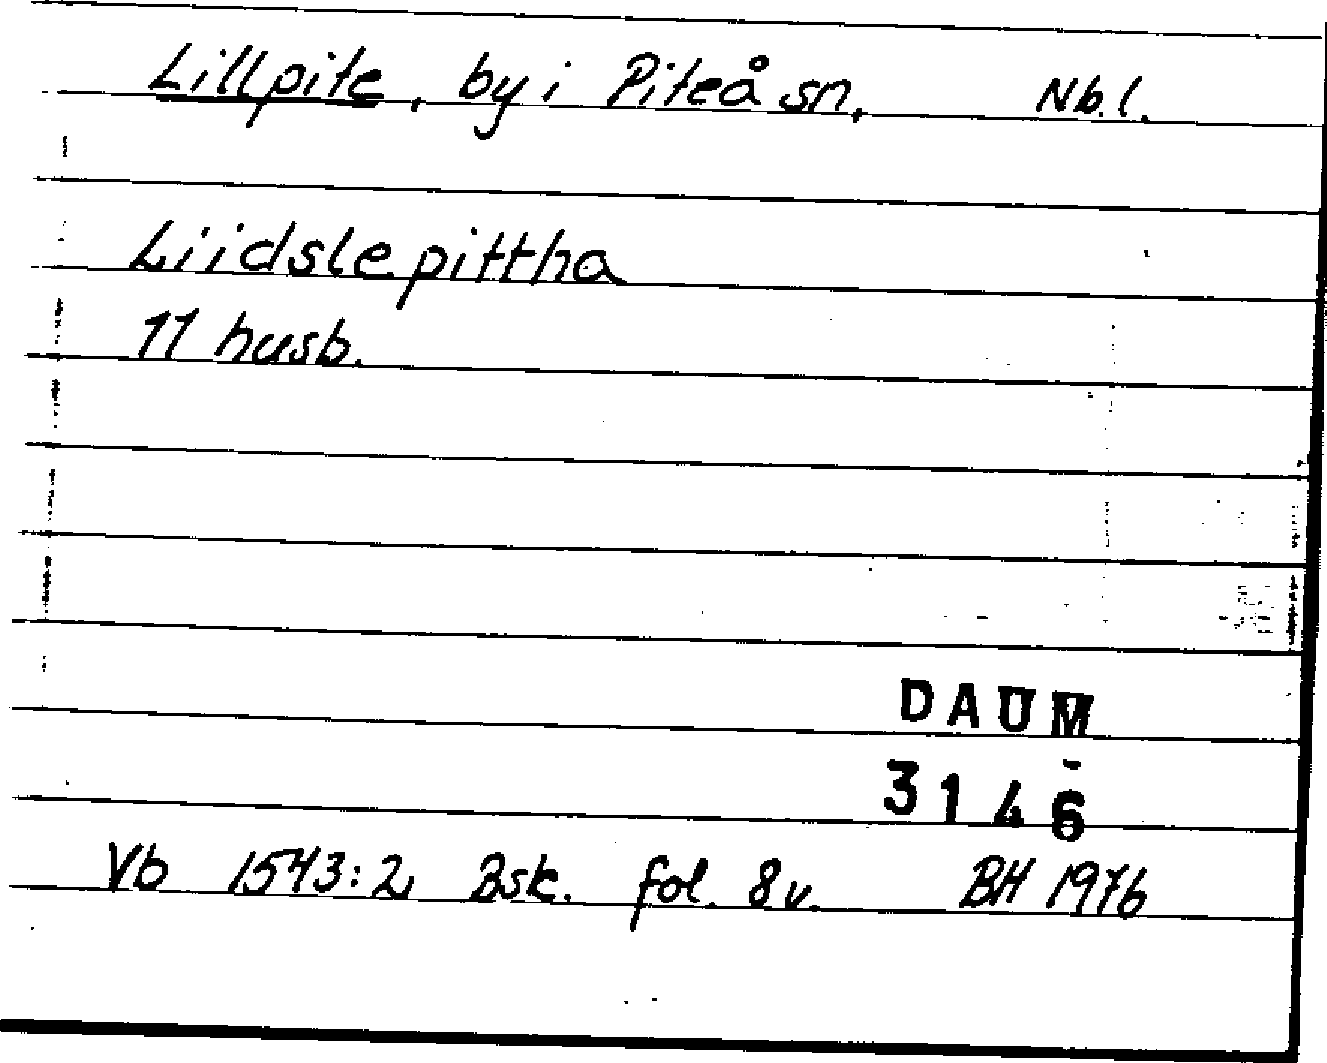 Lillpite, by i Piteå sn, Nb.l.
Liidslepittha
11 husb.
DAUM
3146
Vb 1543:2, Bsk. fol. 8v. BH 1976